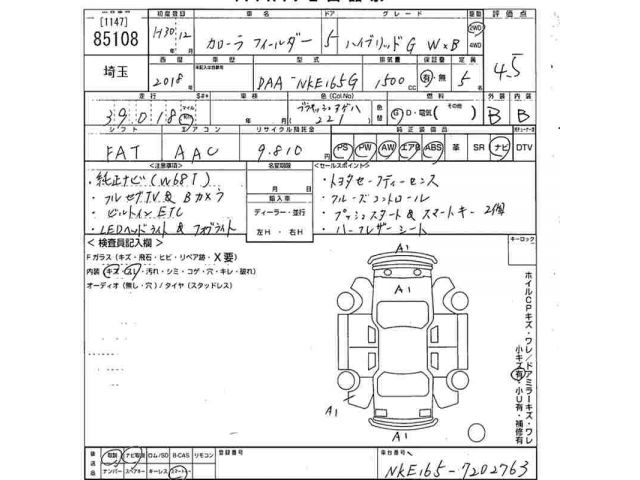 [1147]
85108
埼玉
初度登録 車名 ドア グレード 車歴 評価点
H30.12 カローラ フィールダー 5 ハイブリッドG W×B 2WD 4WD 4.5
西暦 車歴 型式 排気量 保証書 定員
2018 DAA-NKE165G 1500 cc 有・無 5 名
走行 車検 色 (Col No) 燃料 外装 内装
39018 マイル km 年 月 221 色替 G D・電気 (その他) B B
シフト エアコン リサイクル預託金 純正装備品
FAT AAC 9.810 円 PS PW AW エアB ABS 革 SR ナビ DTV
<注意事項> 名変期限 <セールスポイント>
・純正ナビ(W68T) 月 日 ・トヨタセーフティーセンス
・フルセグTV & Bカメラ 輸入車 ・クルーズコントロール
・ビルトインETC ディーラー・並行 ・プッシュスタート&スマートキー2個
・LEDヘッドライト & フォグライト 左H ・ 右H ・ハーフレザーシート
<検査員記入欄> キーロック
Fガラス(キズ・飛石・ヒビ・リペア跡・X要)
内装(キズ・スレ・汚れ・シミ・コゲ・穴・キレ・破れ)
オーディオ(無し・穴)/タイヤ(スタッドレス)
A1
A1
A1
A1
ホイルCPキズ・ワレ/ドアミラーキズ・ワレ
小キズ有・小U有・補修有
後送品 取説 ナビ取説 ロム/SD B-CAS リモコン 登録番号 車台番号
ナンバー スペアキー キーレス スマートキー NKE165-7202763